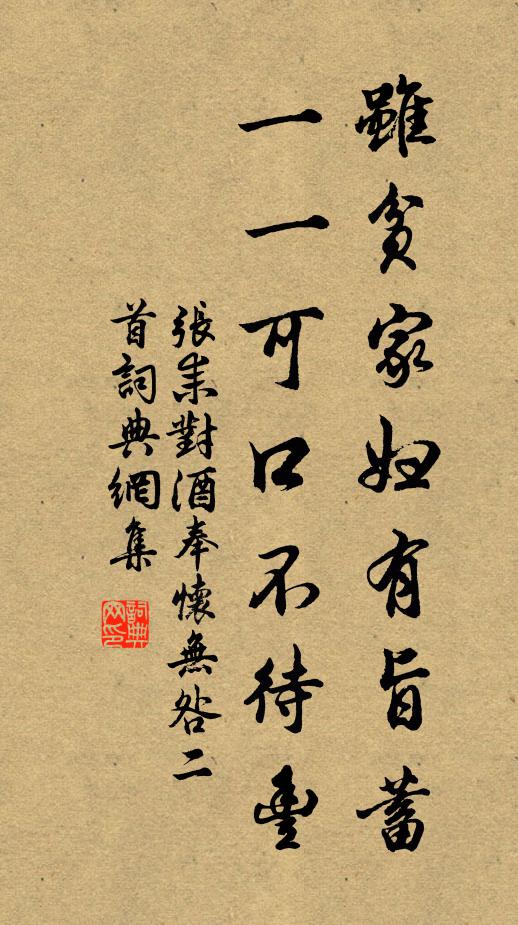 雖貧家婦有旨蓄
一一可口不待豊
張耒對酒奉懷無咎二
首詞典網集
詞典
网印